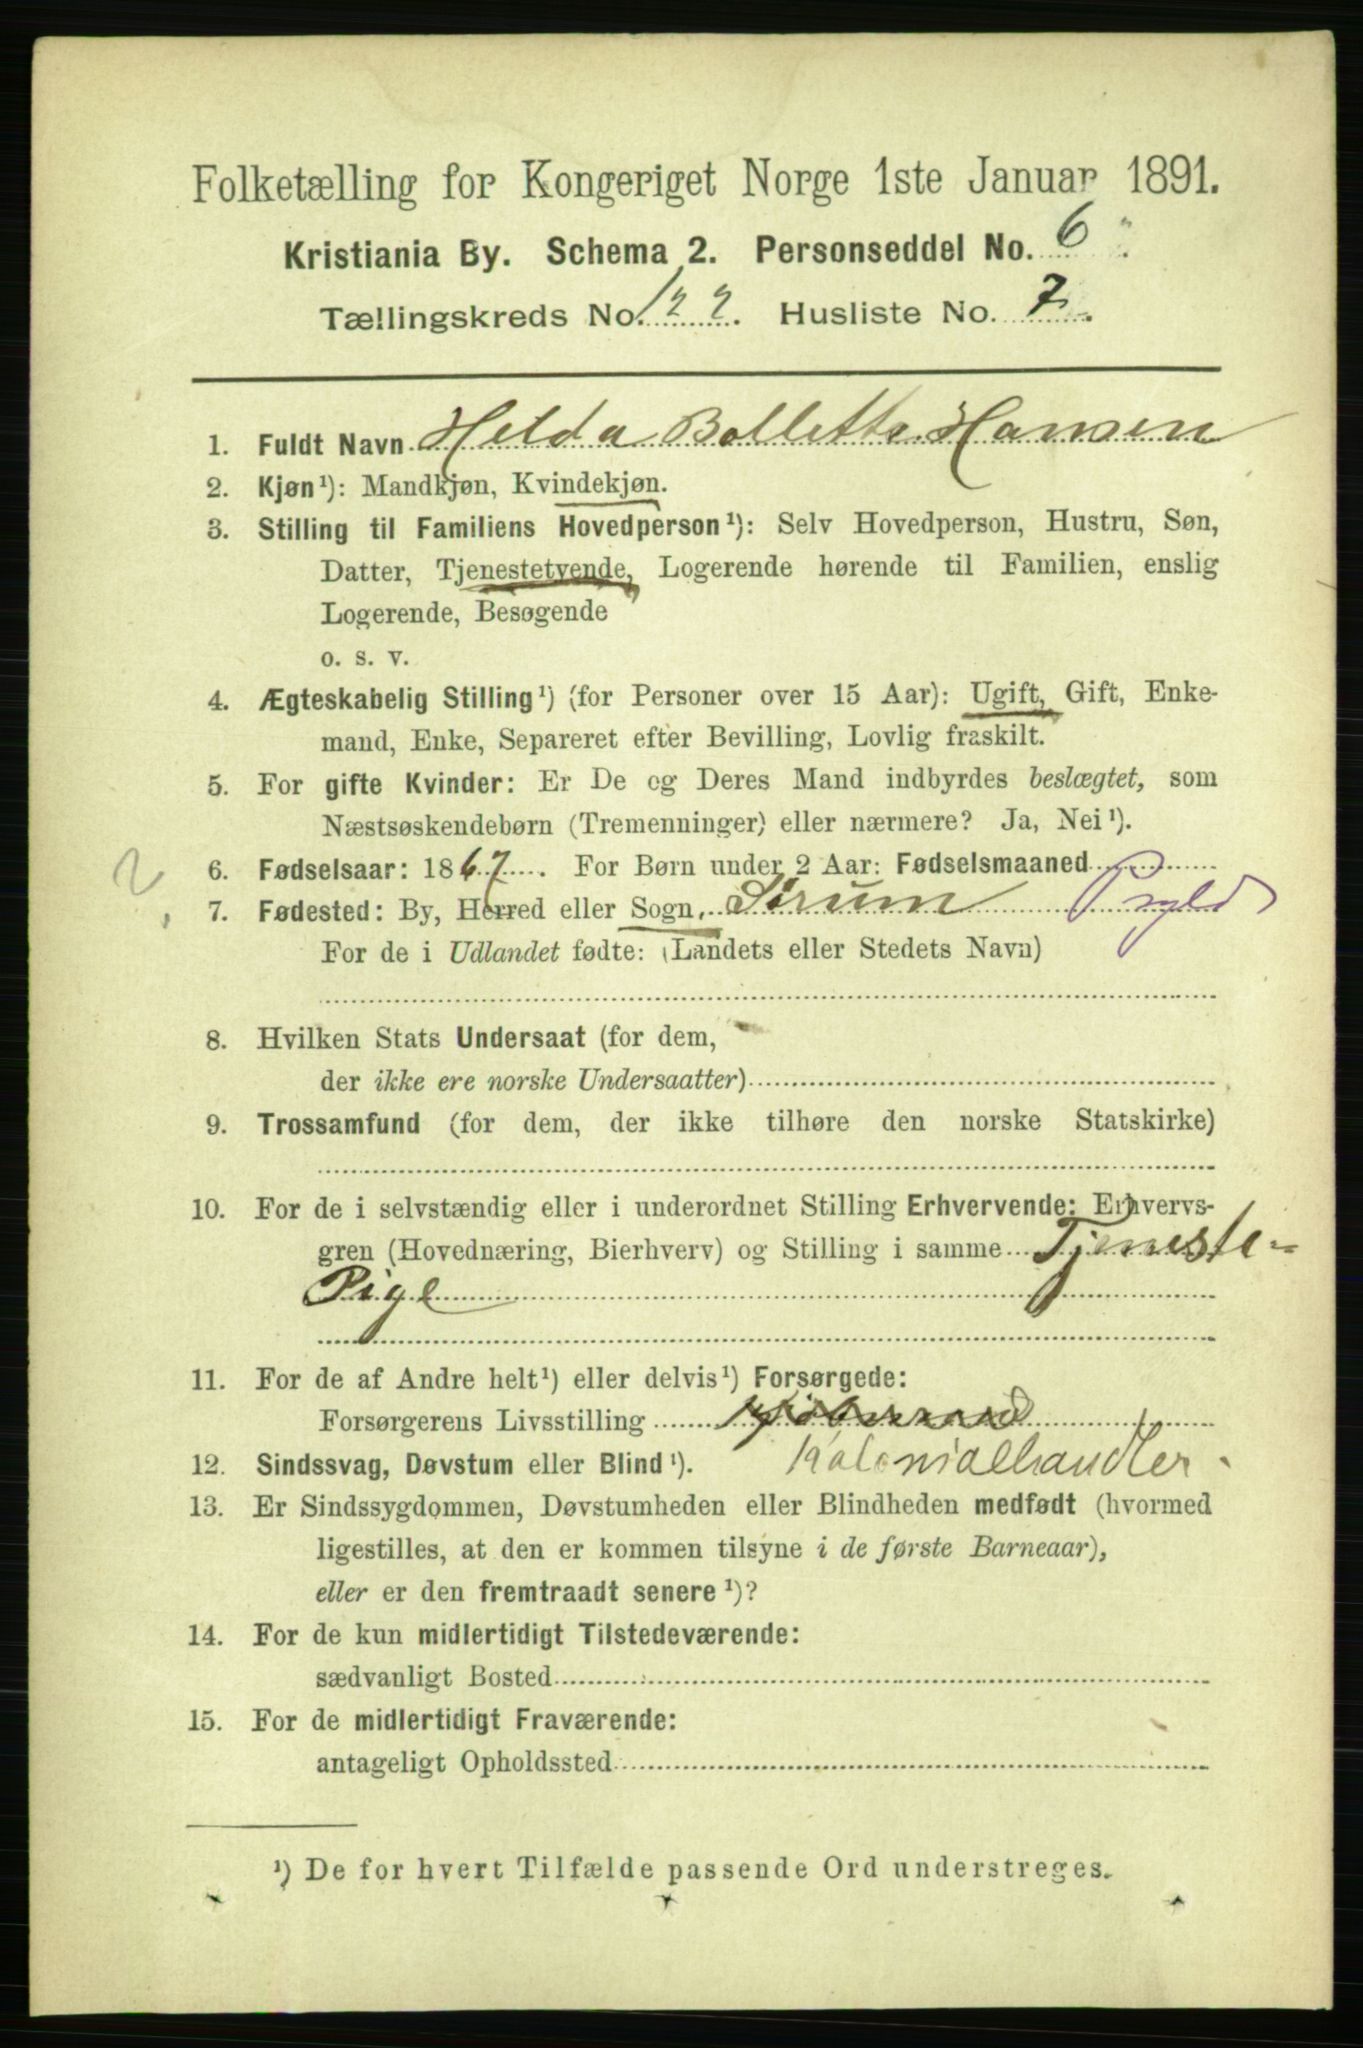 Folketælling for Kongeriget Norge 1ste Januar 1891.
Kristiania By. Schema 2. Personseddel No. 6
Tællingskreds No. 122. Husliste No. 7.
1. Fuldt Navn Helda Bollette Hansen
2. Kjøn¹): Mandkjøn, Kvindekjøn.
3. Stilling til Familiens Hovedperson¹): Selv Hovedperson, Hustru, Søn,
Datter, Tjenestetyende, Logerende hørende til Familien, enslig
Logerende, Besøgende
o. s. v.
4. Ægteskabelig Stilling¹) (for Personer over 15 Aar): Ugift, Gift, Enke-
mand, Enke, Separeret efter Bevilling, Lovlig fraskilt.
5. For gifte Kvinder: Er De og Deres Mand indbyrdes beslægtet, som
Næstsøskendebørn (Tremenninger) eller nærmere? Ja, Nei¹).
2
6. Fødselsaar: 1867. For Børn under 2 Aar: Fødselsmaaned
7. Fødested: By, Herred eller Sogn, Sørum
For de i Udlandet fødte: (Landets eller Stedets Navn)
8. Hvilken Stats Undersaat (for dem,
der ikke ere norske Undersaatter)
9. Trossamfund (for dem, der ikke tilhøre den norske Statskirke)
10. For de i selvstændig eller i underordnet Stilling Erhvervende: Erhvervs-
gren (Hovednæring, Bierhverv) og Stilling i samme Tjeneste-
Pige
11. For de af Andre helt¹) eller delvis¹) Forsørgede:
Forsørgerens Livsstilling
12. Sindssvag, Døvstum eller Blind¹). Kolonialhandler.
13. Er Sindssygdommen, Døvstumheden eller Blindheden medfødt (hvormed
ligestilles, at den er kommen tilsyne i de første Barneaar),
eller er den fremtraadt senere¹)?
14. For de kun midlertidigt Tilstedeværende:
sædvanligt Bosted
15. For de midlertidigt Fraværende:
antageligt Opholdssted
¹) De for hvert Tilfælde passende Ord understreges.